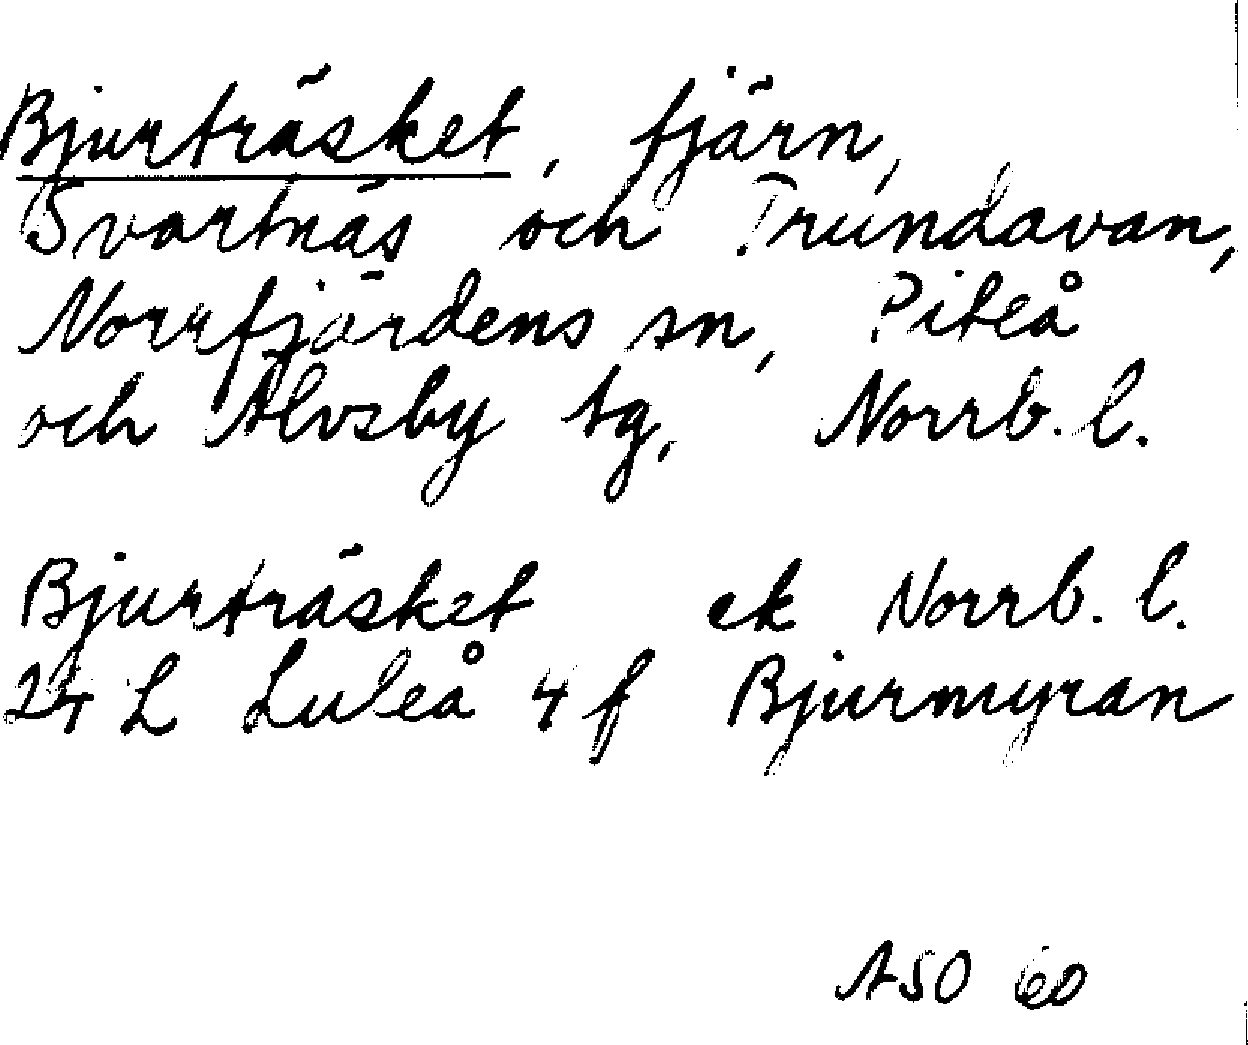 Bjurträsket, tjärn,
Svartnäs och Trundavan,
Norrfjärdens sn, Piteå
och Älvsby tg, Norrb. l.
Bjurträsket ek Norrb. l.
24 L Luleå 4 f Bjurmyran
ASO 60